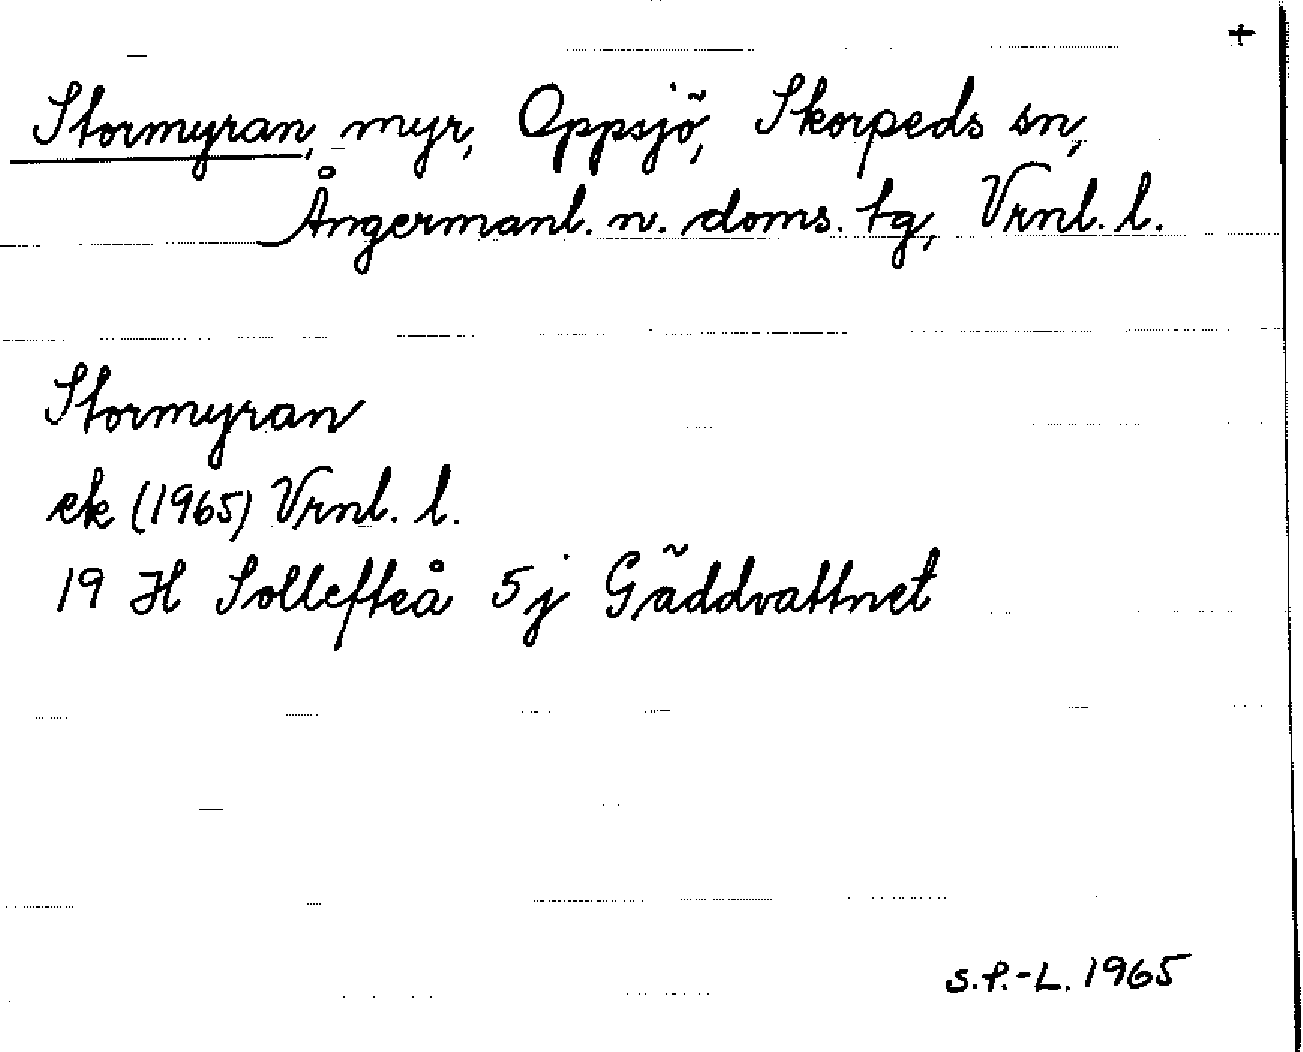 +
Stormyran, myr, Oppsjö, Skorpeds sn,
Ångermanl. n. doms. tg, Vrnl. l.
Stormyran
ek (1965) Vrnl. l.
19 H Sollefteå 5j Gäddvattnet
S.P.-L. 1965